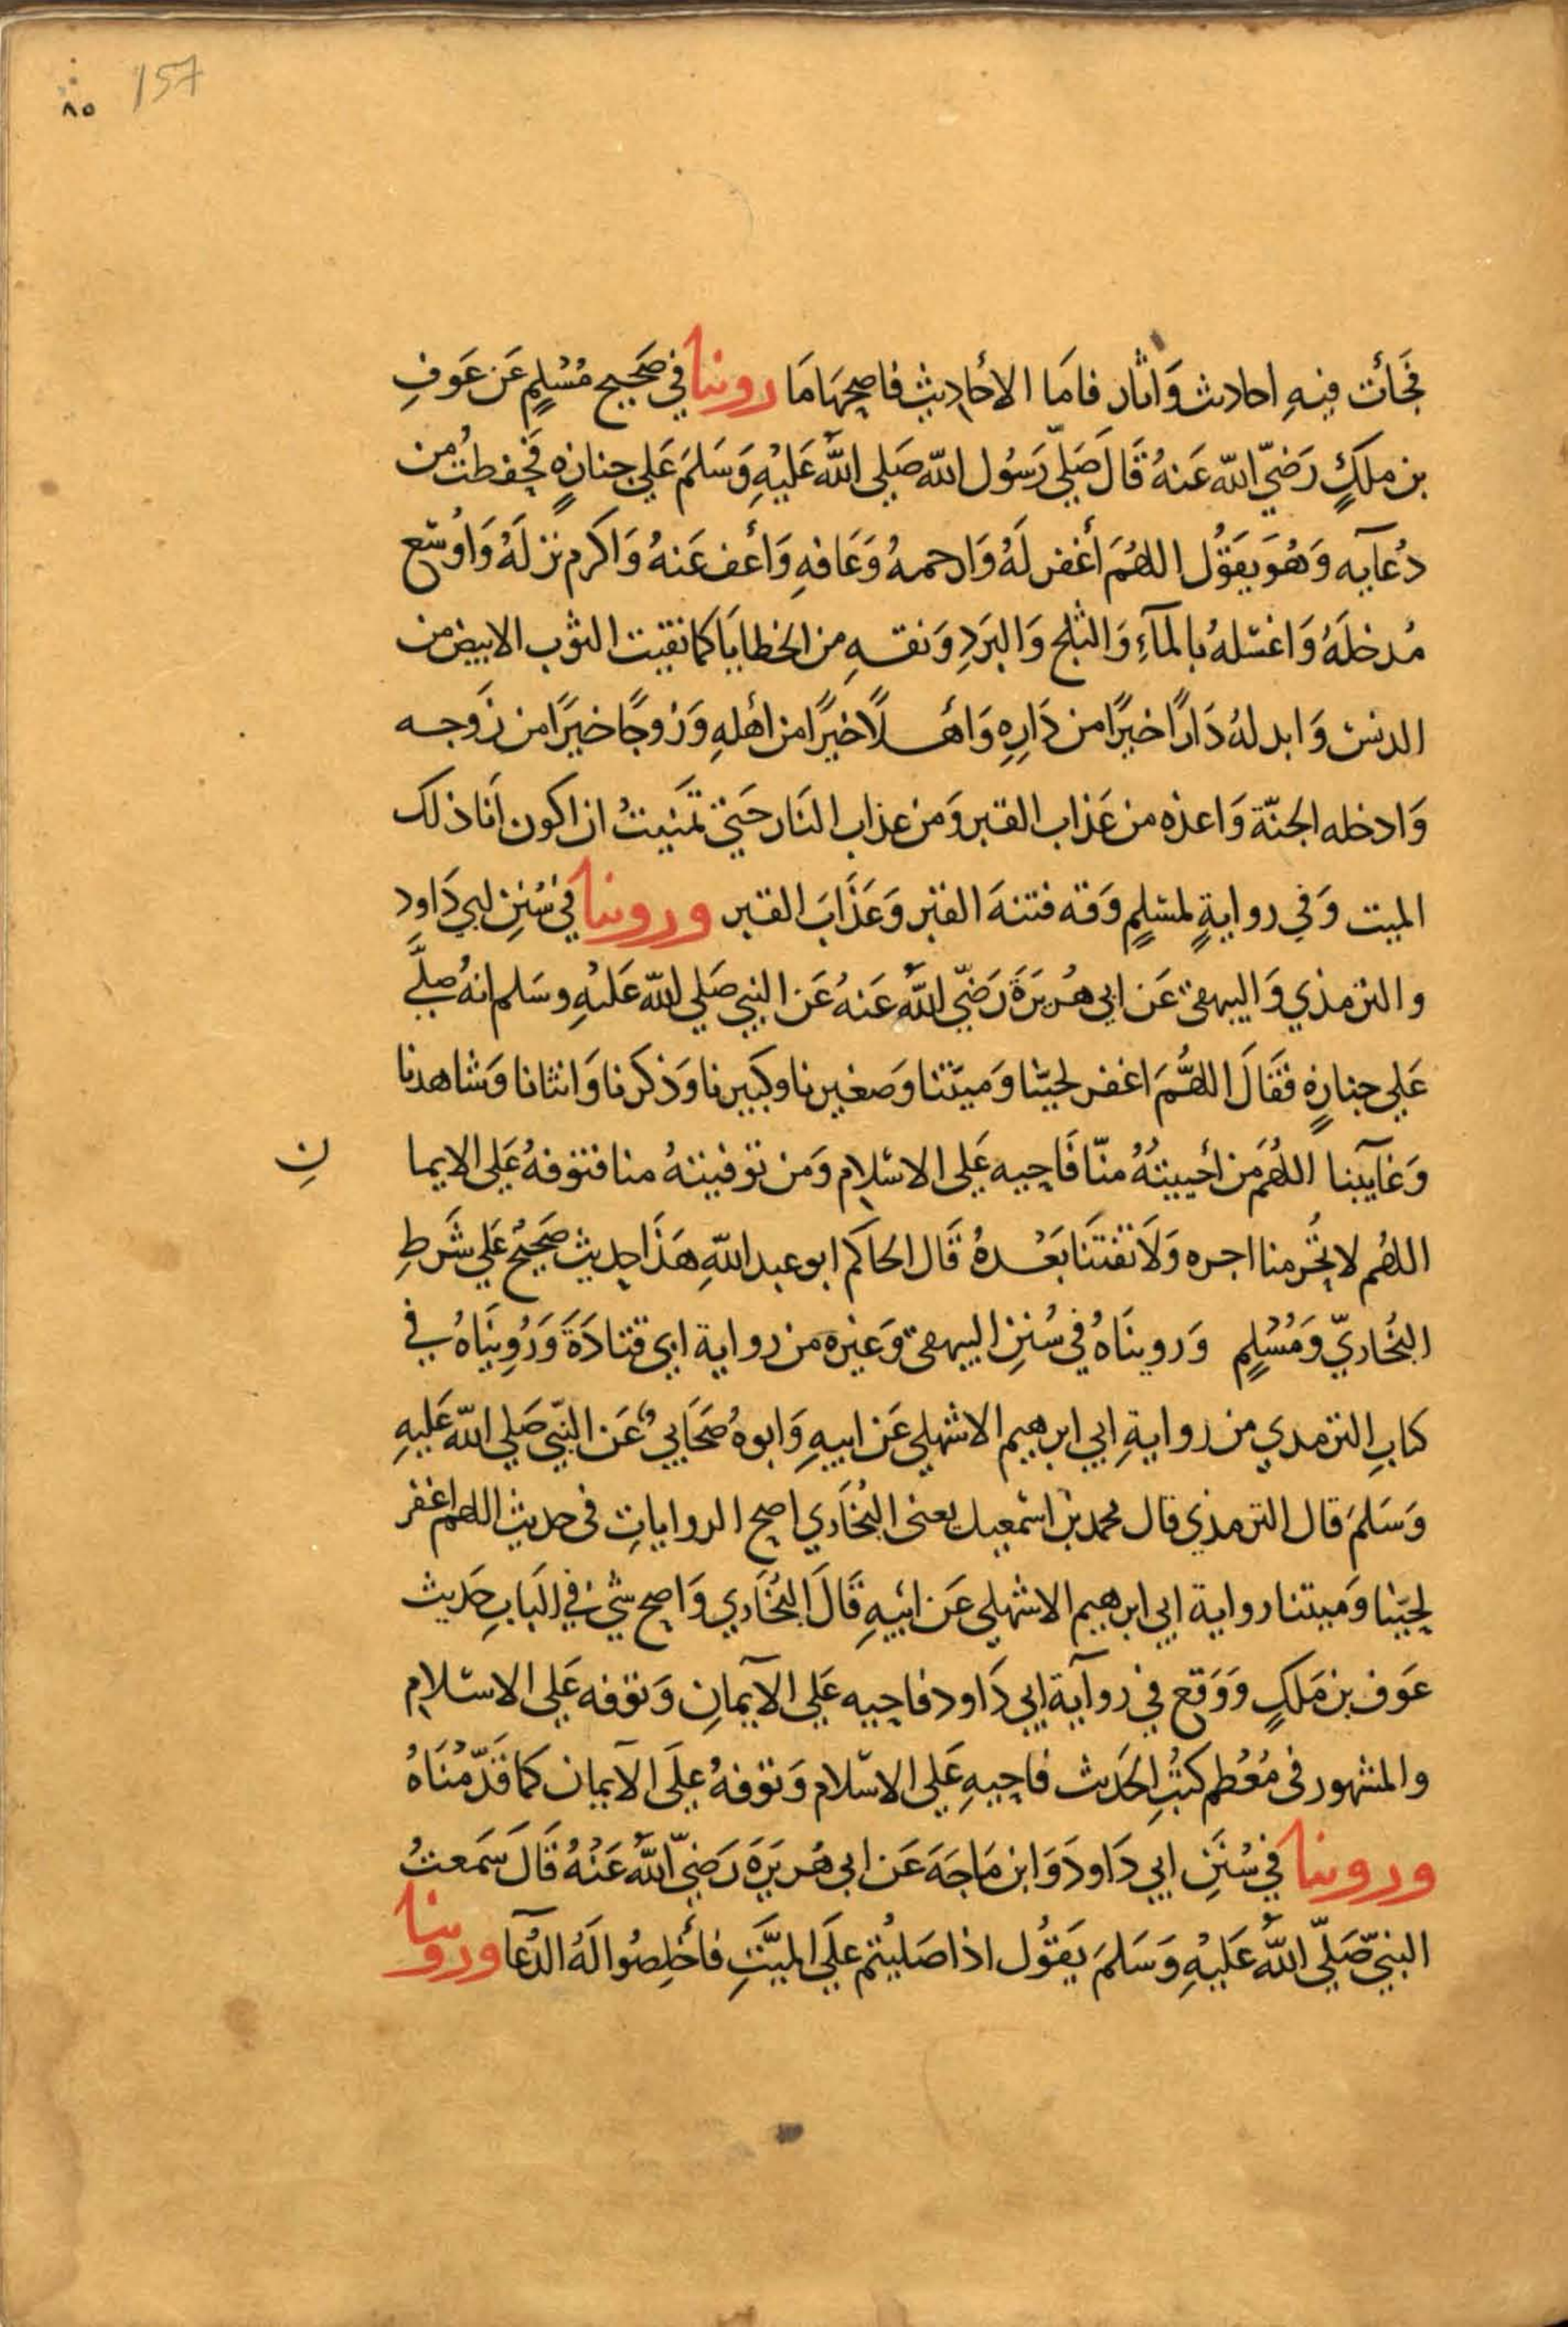 157
٨٥
فجَأت فيهِ احاديث وَاثار فامَا الاحَاديث فاصحهَا مَا روينا في صَحيح مُسْلِمٍ عَن عَوفِ
بن ملكٍ رَضيّ الله عَنهُ قَالَ صَلّى رَسُول الله صَلي اللَّه عَليْهِ وَسَلمَ عَلي جنازهٍ فحفظتُ من
دُعآيه وَهُوَ يَقوُل اللهُمَ أغفر لَهُ وَارحمهُ وَعَافهِ وَأعف عَنهُ وَاكرم نزلَهُ وَاوُسّع
مُدخلَهُ وَاغسّلهُ بالمآءِ وَالثلج وَالبَردِ وَنقهِ من الخطايَا كما نقيت الثوب الابيض من
الدنس وَابدلهُ دَارًا خيرًا من دَارِهِ وَأهلًا خيرًا من أهلهِ وَزوجًا خيرًا من زَوجه
وَادخله الجنّة وَاعذه من عَذاب القبر وَمن عذاب النَار حَتي تمنَيتُ ان اكون اَنا ذلك
الميت وَفي روايةٍ لمسْلمٍ وَقه فتنهَ القبْر وَعَذَابَ القبر وروينا في سُنَنِ ابي دَاود
والترمذي وَالبيهقي عَن ابي هُريرَةَ رَضيّ اللَّه عَنهُ عَن النبي صَلي للّه عَليْهِ وسَلم انهُ صلَّي
عَلي جنازهٍ فقَالَ اللهُّمَ اغفر لحيّنا وَميتنا وَصغيرنا وكبيرنا وَذكرنا وَانثانا وَشاهدنا
وَغآيبنا اللهُمَ مَن أحييتهُ منّا فَاحيه عَلى الاسْلام وَمن توفيتهُ منا فتوفهُ عَلى الايما نِ
اللهُم لا تحُرمنا اجره وَلَا تفتنَا بَعْدهُ قَال الحَاكم ابو عبد اللّهِ هَذَا حديث صَحيحُ عَلي شَرطِ
البُخاريّ وَمُسْلِمٍ وَروينَاهُ في سُنَنِ البيهقي وَغيره من رواية ابي قتادَةَ وَرُوِينَاهُ في
كتابِ الترمدي من روايةِ ابي ابرهيم الاشهلي عَن ابيهِ وَابوهُ صَحَابيٌ عَن النّبي صَلي اللّه عَليهِ
وَسَلمَ قال الترمذي قال محمد بن اسْمعيل يعنى البُخَاري اصح الروايات في حديث اللهم اغفر
لحيّنا وَميتنا رواية ابي ابرهيم الاشهلي عَن ابيهِ قَالَ البُخَاري وَاصح شيء في البَابِ حَديث
عَوف بن مَلكٍ وَوَقع في روآية ابي دَاود فاحيه عَلي الآيمانِ وَتوفه عَلي الاسْلام
والمشهور في مُعُظم كتبُ الحَديث فاحيهِ عَلي الاسْلام وَتوفهُ علَى الآيمان كَما قَدّمْنَاهُ
وروينا في سُنَنِ ابي دَاود وَابن مَاجَه عَن ابي هُريرَة رَضيّ اللَّه عَنْهُ قَالَ سَمَعتُ
النبيّ صَلّى اللَّه عَليْهِ وَسَلمَ يَقوُل اذا صَليُتم علَى الميَّتِ فأخلِصُوا لَهُ الدُعا وروينا